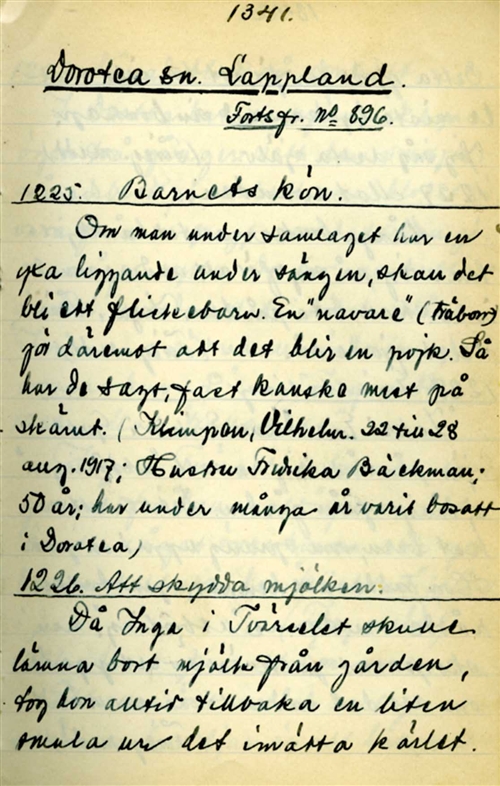 1341.
Dorotea sn. Lappland.
Forts fr. No 896.
1225. Barnets kön.
Om man under samlaget har en
yxa liggande under sängen, skall det
bli ett flickebarn. En "navare" (träborr)
gör däremot att det blir en pojk. Så
har de sagt, fast kanske mest på
skämt. (Klimpen, Vilhelm. 22 till 28
aug. 1917; Hustru Fredrika Bäckman;
50 år; har under många år varit bosatt
i Dorotea)
1226. Att skydda mjölken.
Då Inga i Tvärselet skulle
lämna bort mjölk från gården,
tog hon alltid tillbaka en liten
smula ur det imätta kärlet.